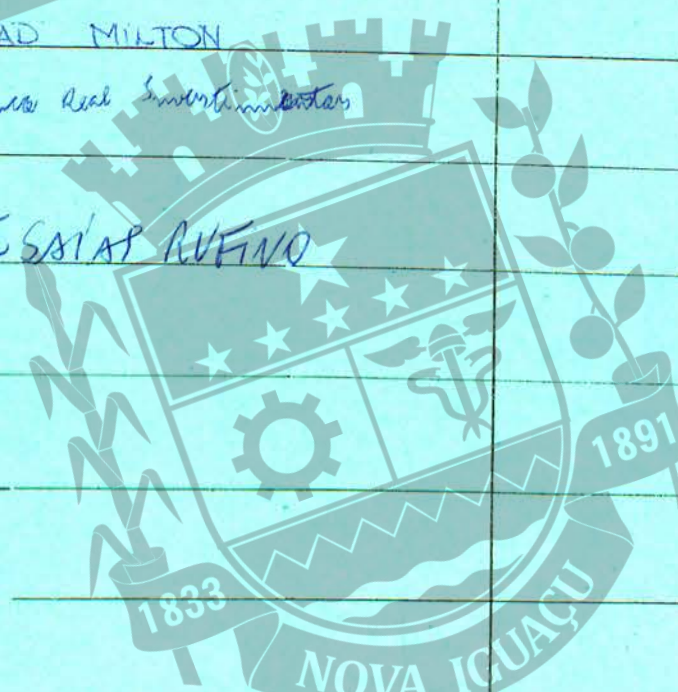 AD MILTON
Real Investimentos
ESAÍAS RUFINO
1891
1833
NOVA IGUAÇU